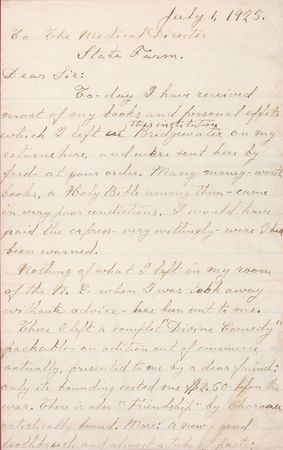 July 1, 1925.
To The Medical Director
State Farm.
Dear Sir:
To-day I have received
most of my books and personal effets
this institution
which I left at Bridgewater on my
returne here, and were sent here by
fred- at your order. Many money-worth
books, a Holy Bible among them - came
in very poor conditions. I would have
paid the express - very willingly - were I
been warned.
Nothing of what I left in my room
of the N. E. when I was took away
without advice - has been sent to me.
There I left a complet "Divine Comedy"
packeable - an adition out of commerce
actually, presented to me by a dear friend;
only its bounding costed me $2.50 - before the
war. There is also "Friendship" by Thoreau
artistically bound. More: a new, good
toothbrush and almost a tube of paste;